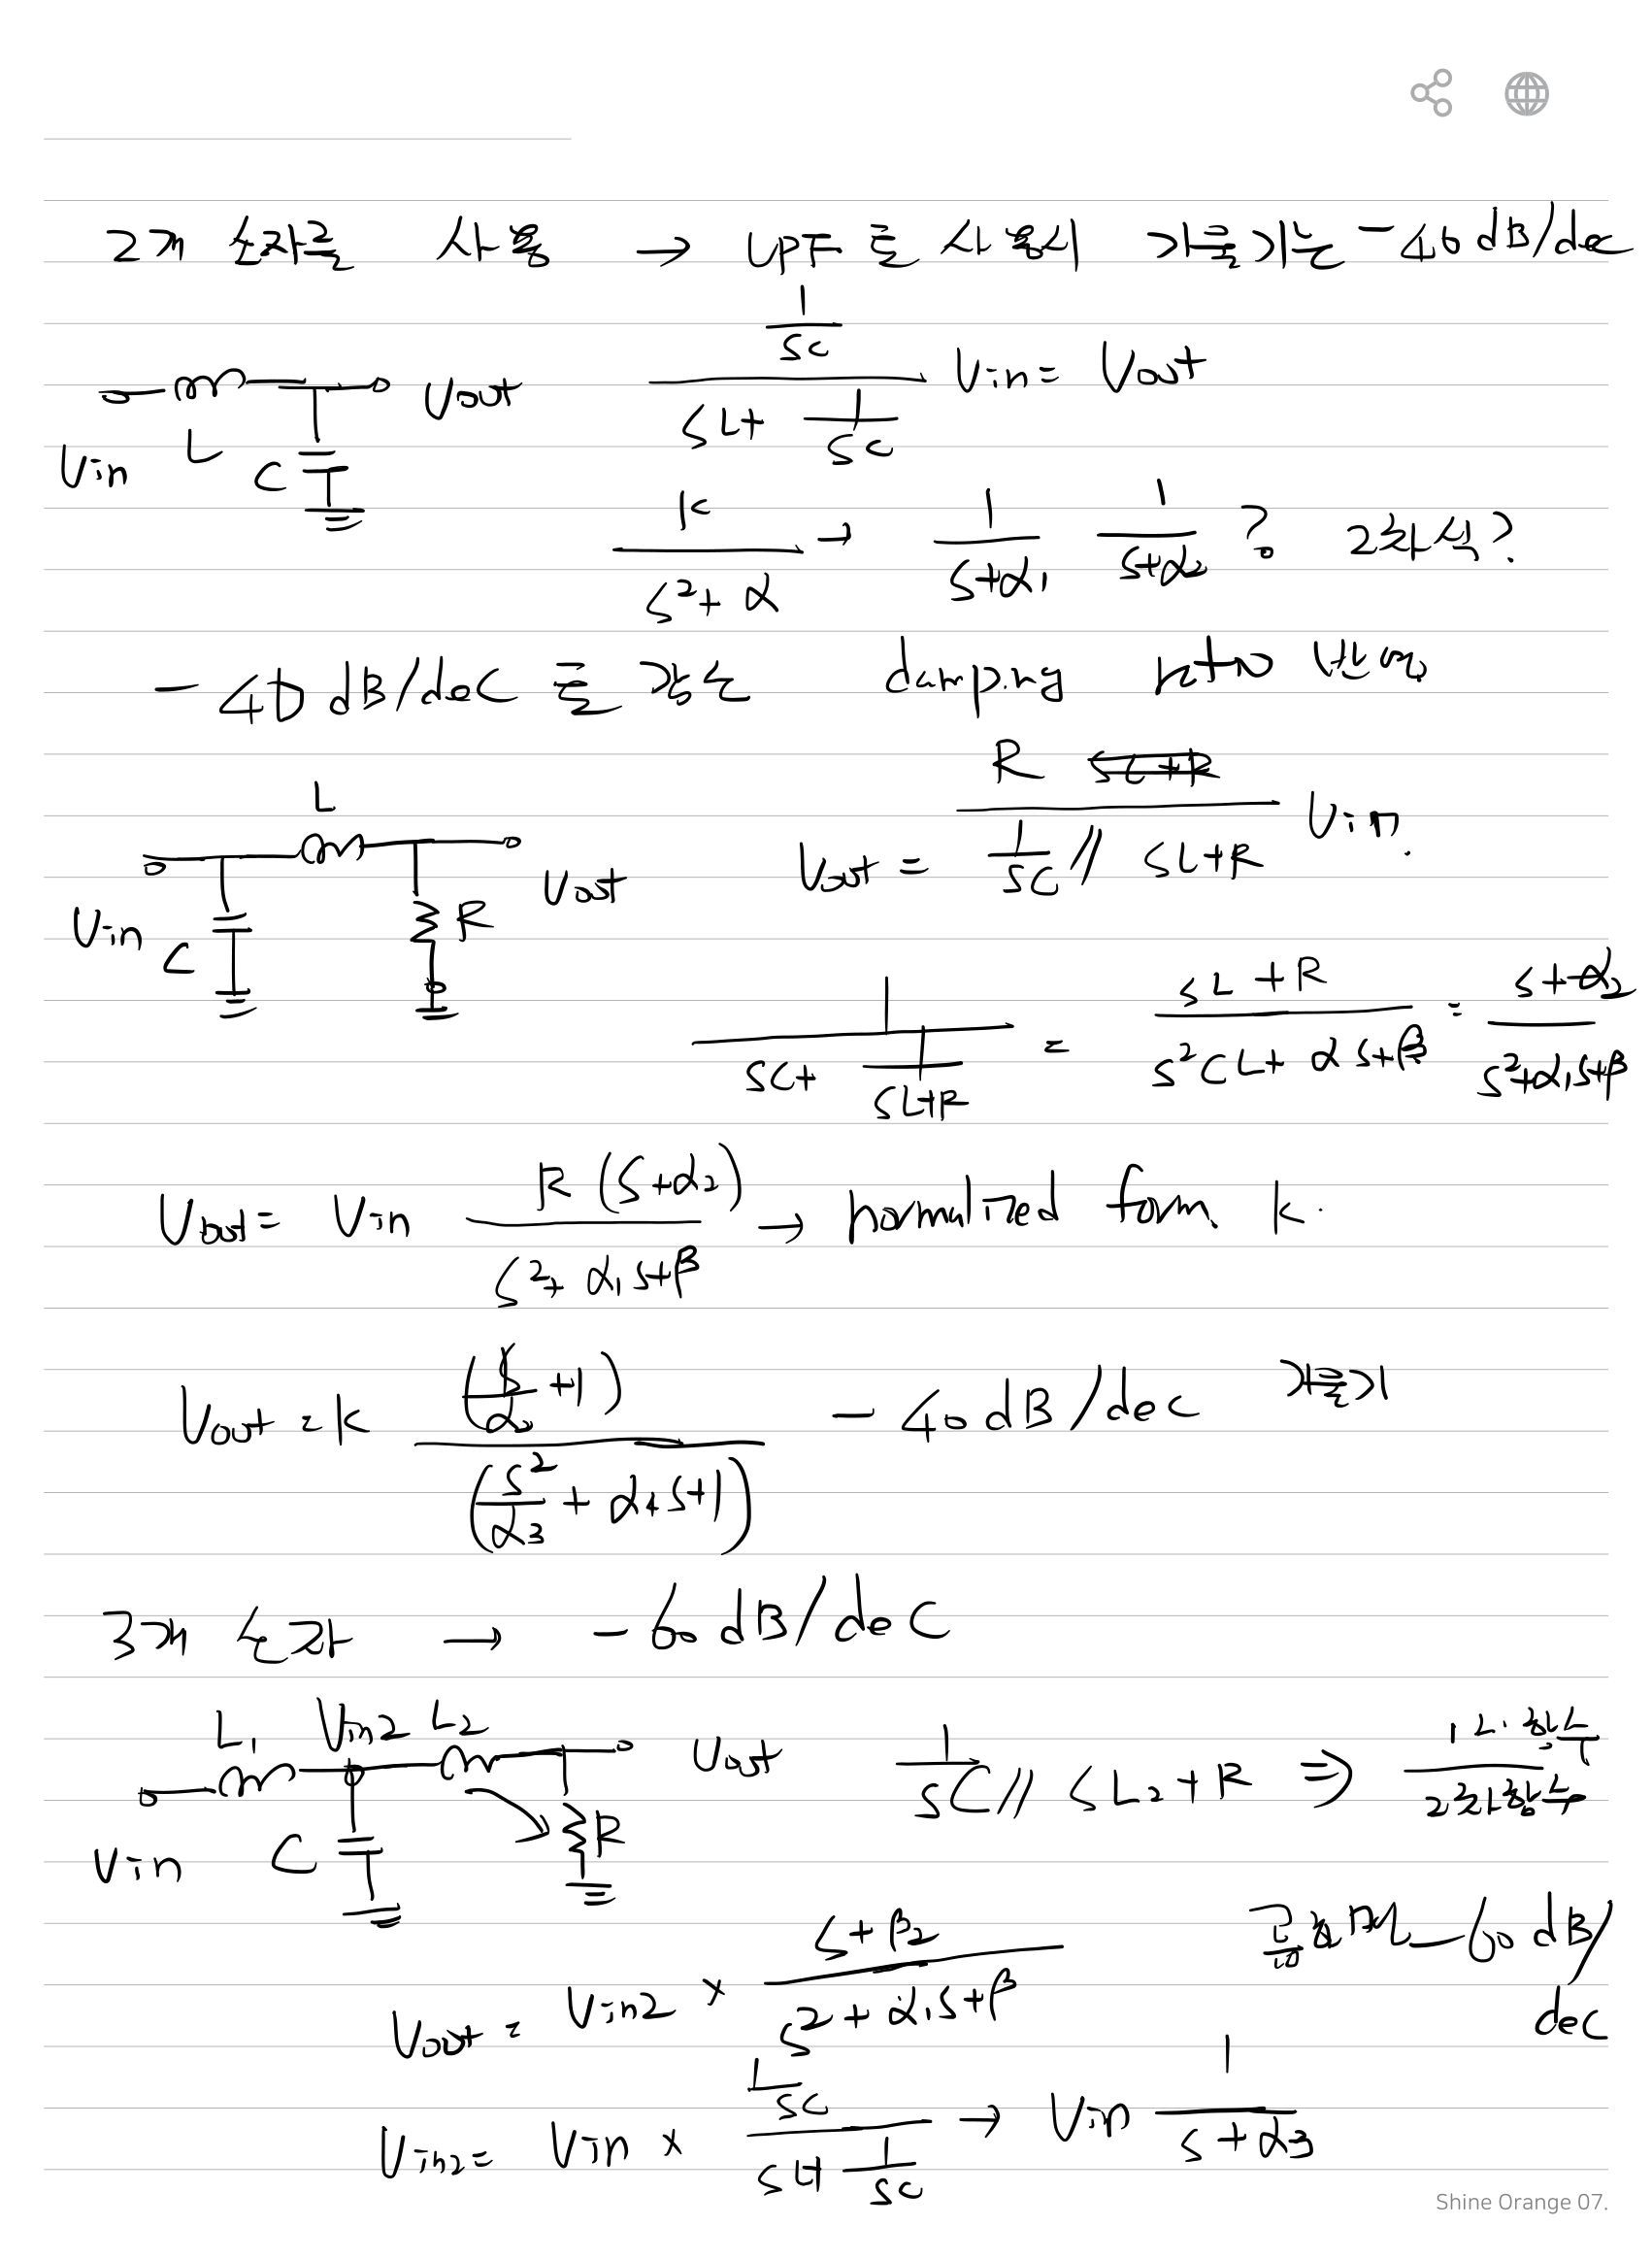 2개 소자를 사용 → LPF로 사용시 기울기는 -40 dB/dec
Vin L C Vout (1/SC)/(SL+ 1/SC) Vin = Vout
K/(S²+α) → 1/(S+α₁) 1/(S+α₂) ? 2차식?
-40 dB/dec로 감소 damping ratio 반영
L Vin C R Vout Vout = R/(1/SC // SL+R) Vin.
1/(SC+ 1/(SL+R)) = (SL+R)/(S²CL+αS+β) = (S+α₂)/(S²+α₁S+β)
Vout = Vin R(S+α₂)/(S²+α₁S+β) → normalized form K.
Vout = K (S/α₂+1)/(S²/α₃+α₄S+1) -40 dB/dec 기울기
3개 소자 → -60 dB/dec
L₁ Vin2 L₂ Vin C R Vout 1/SC // SL₂+R ⇒ 1차함수/2차함수
Vout = Vin2 × (S+β₂)/(S²+α₁S+β) -60 dB/dec
Vin2 = Vin × (1/SC)/(SL+ 1/SC) → Vin 1/(S+α₃)
Shine Orange 07.